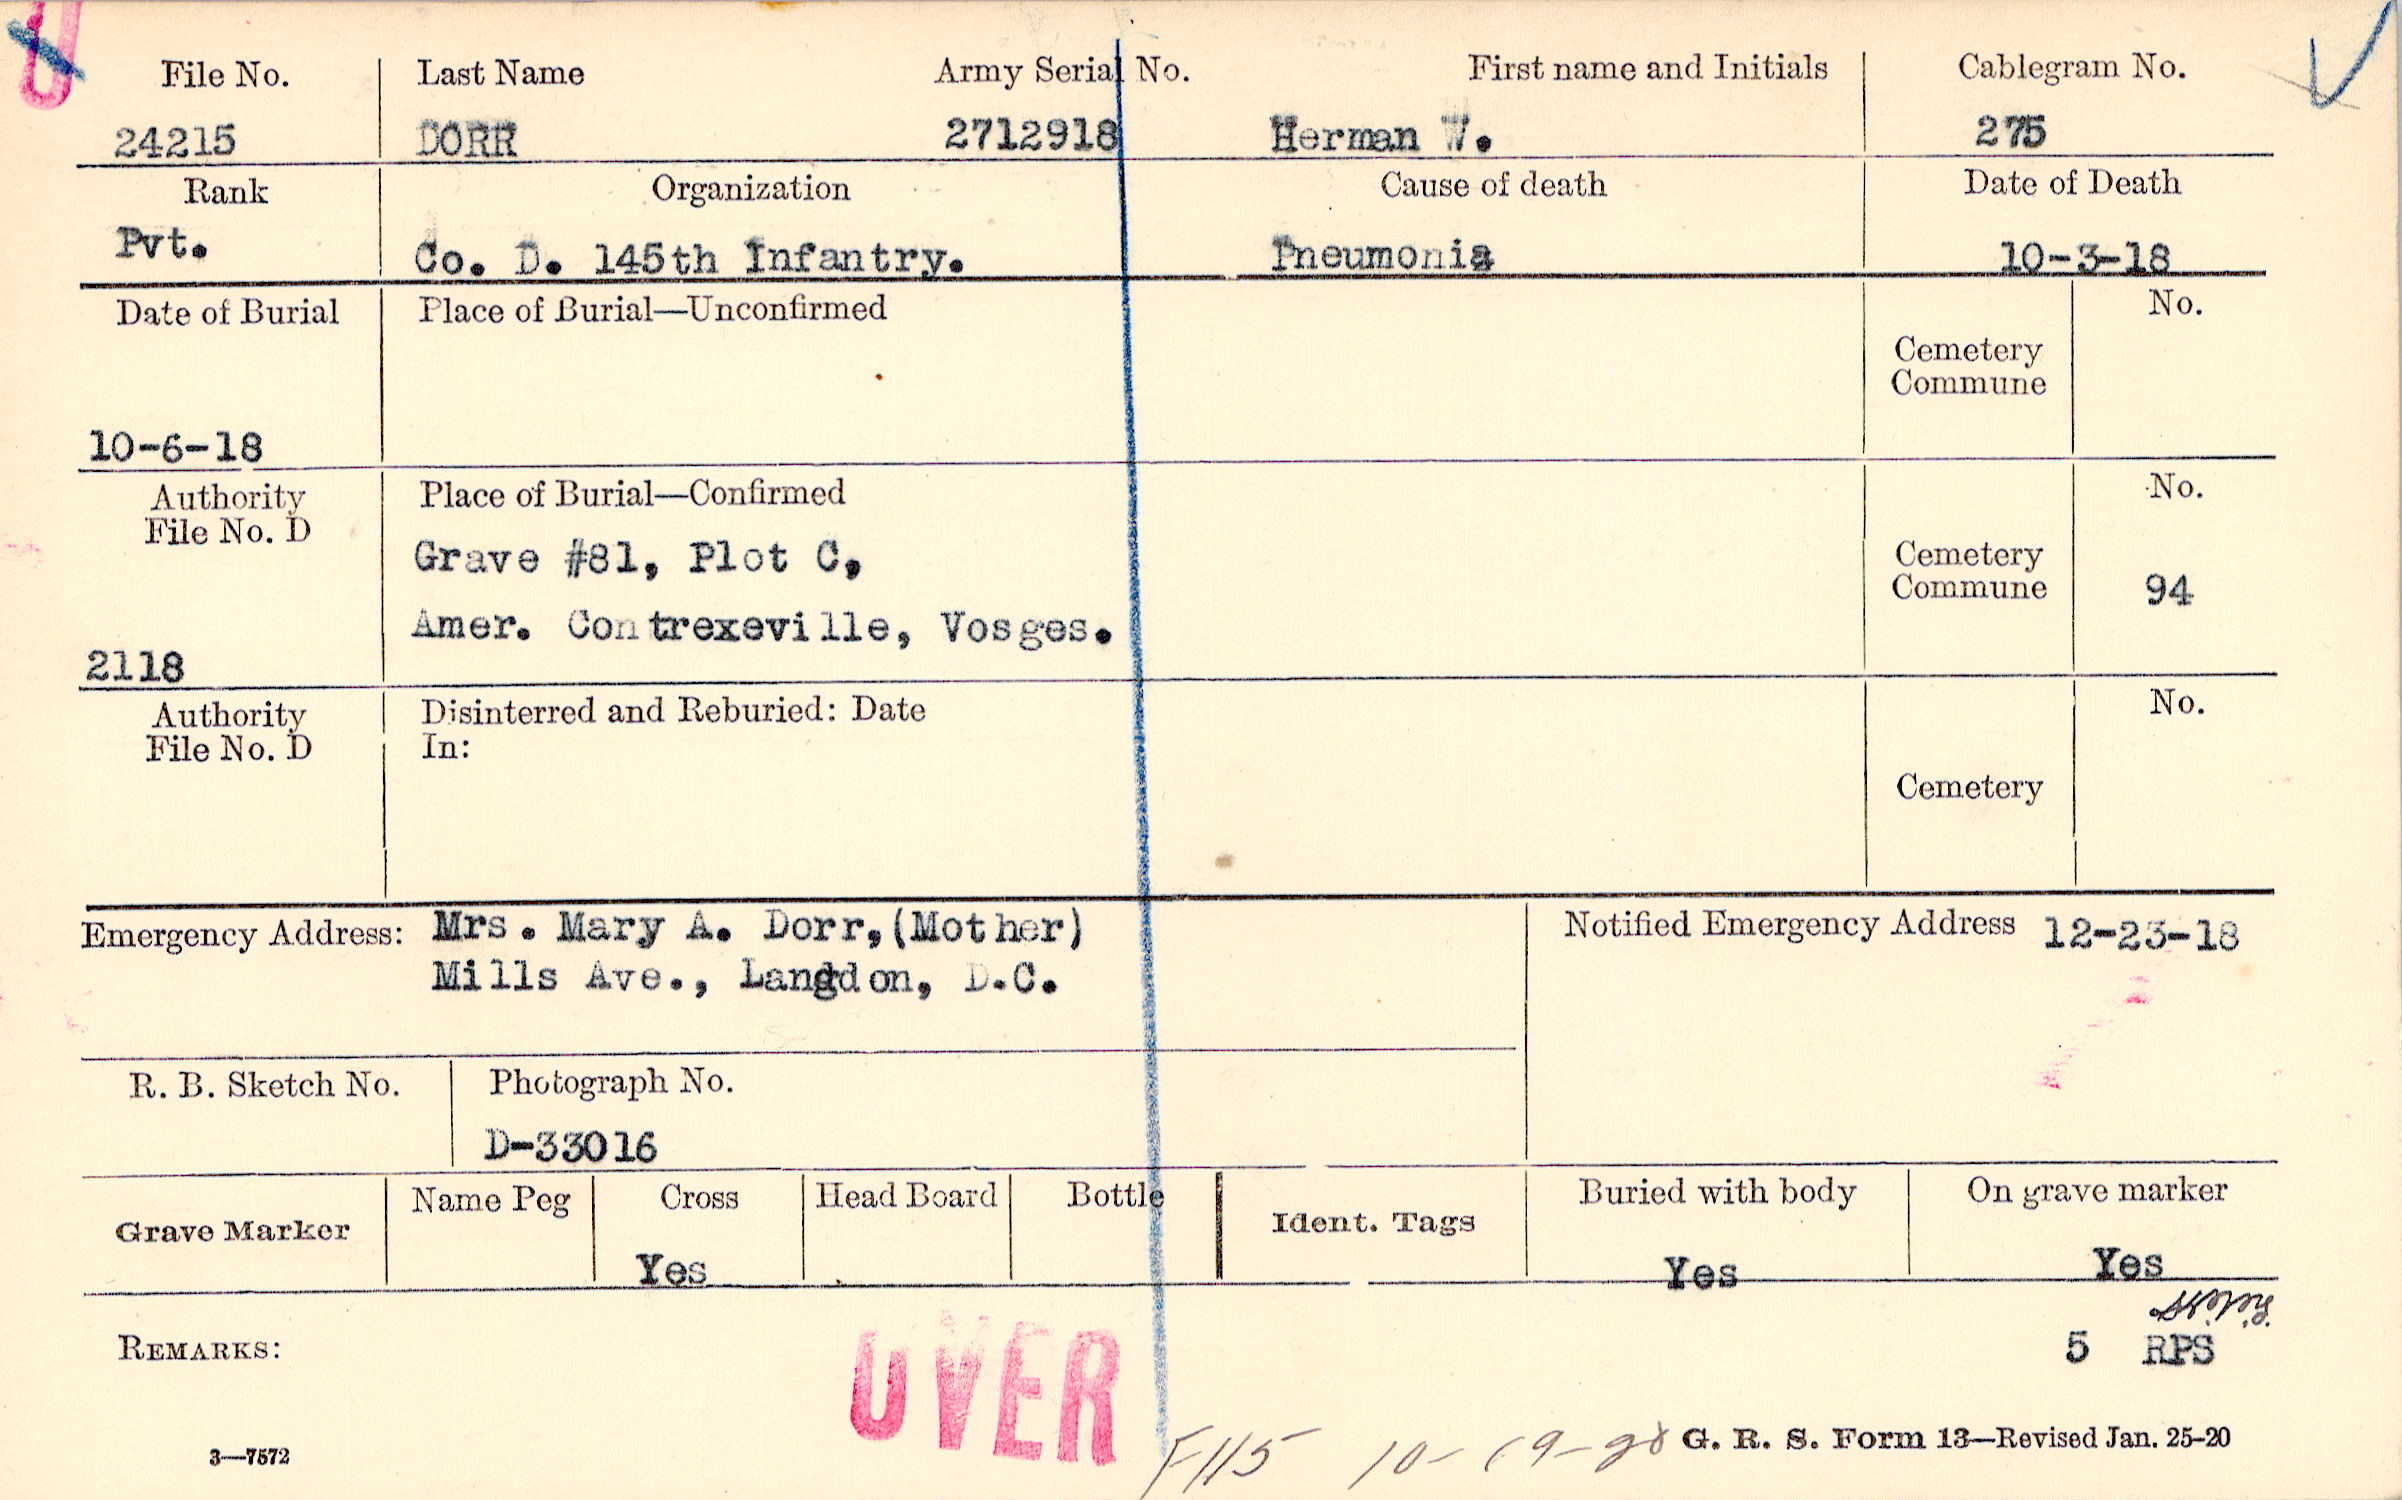 U
File No. Last Name Army Serial No. First name and Initials Cablegram No.
24215 DORR 2712918 Herman W. 275
Rank Organization Cause of death Date of Death
Pvt. Co. D. 145th Infantry. Pneumonia 10-3-18
Date of Burial Place of Burial—Unconfirmed No.
Cemetery
Commune
10-6-18
Authority Place of Burial—Confirmed No.
File No. D
Grave #81, Plot C, Cemetery
Commune 94
Amer. Contrexeville, Vosges.
2118
Authority Disinterred and Reburied: Date No.
File No. D In:
Cemetery
Emergency Address: Mrs. Mary A. Dorr,(Mother) Notified Emergency Address 12-23-18
Mills Ave., Langdon, D.C.
R. B. Sketch No. Photograph No.
D-33016
Name Peg Cross Head Board Bottle Buried with body On grave marker
Grave Marker Ident. Tags
Yes Yes Yes
REMARKS: 5 RPS
OVER
3—7572 G. R. S. Form 13—Revised Jan. 25-20